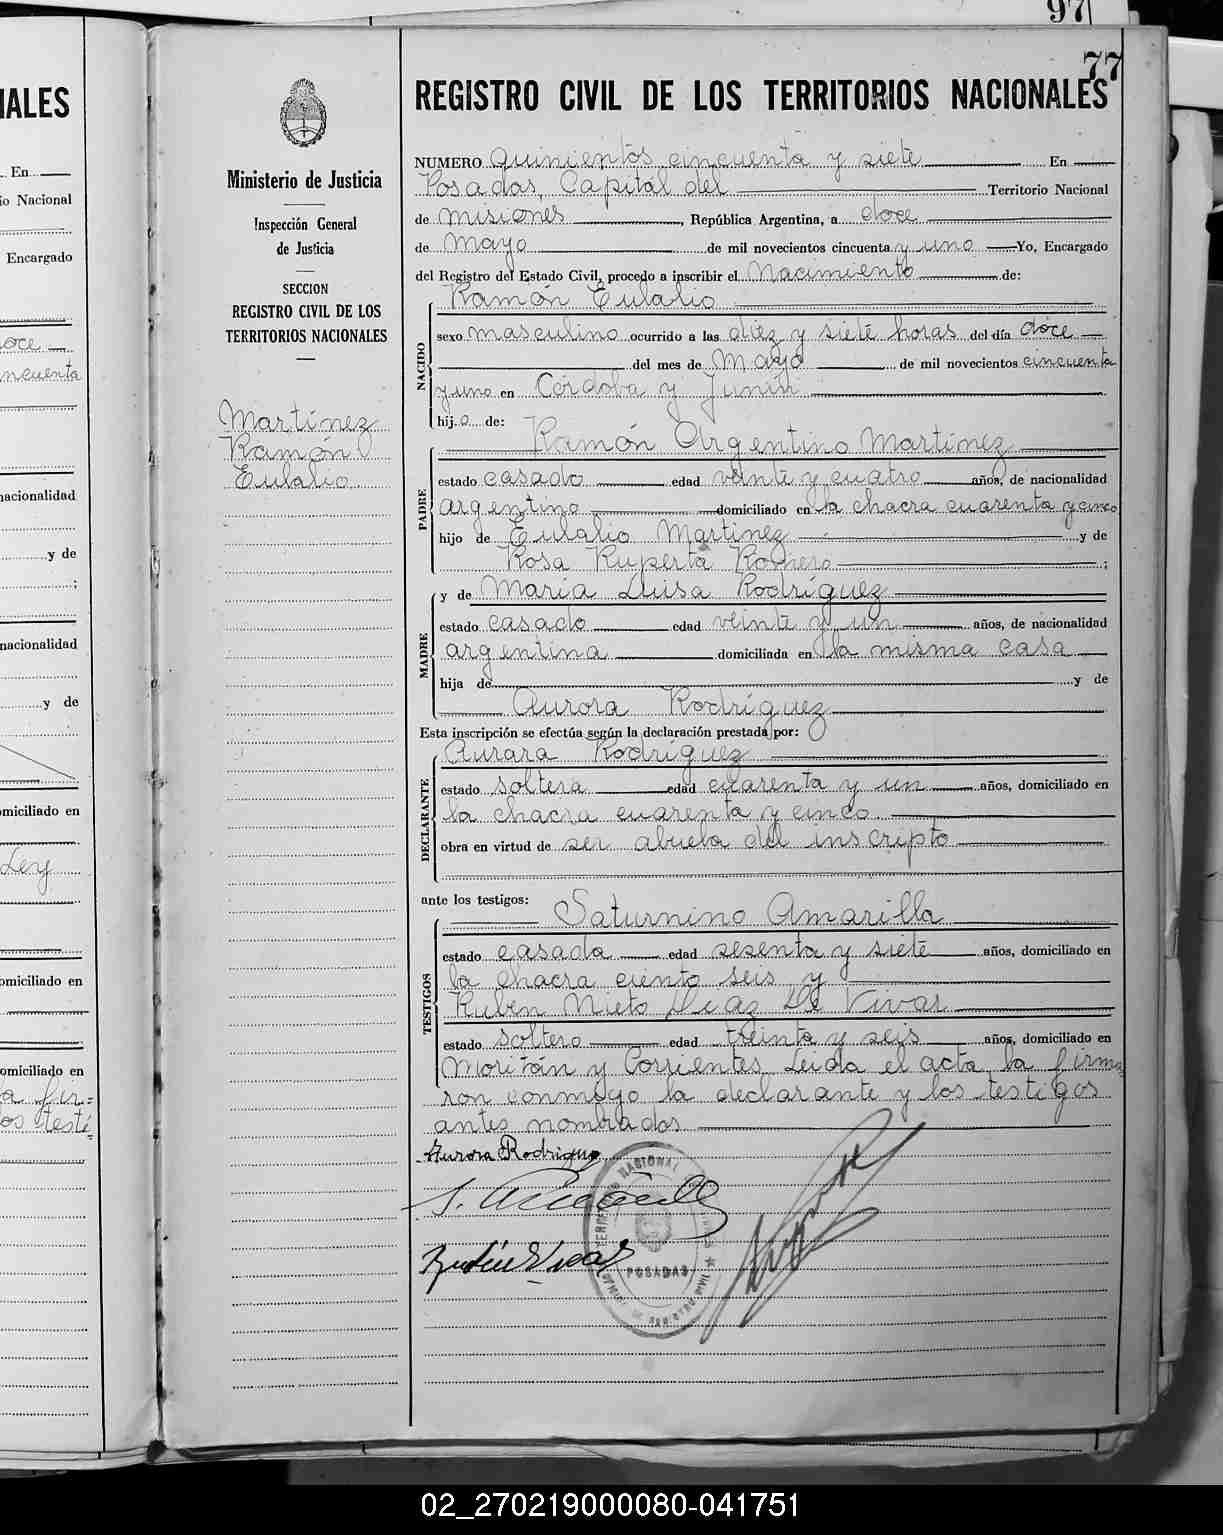 97
77
IALES
En
io Nacional
Encargado
doce
ncuenta
nacionalidad
y de
;
nacionalidad
y de
omiciliado en
Ley
omiciliado en
omiciliado en
a fir=
os testi=
Ministerio de Justicia
Inspección General
de Justicia
SECCION
REGISTRO CIVIL DE LOS
TERRITORIOS NACIONALES
Martínez
Ramón
Eulalio
REGISTRO CIVIL DE LOS TERRITORIOS NACIONALES
NUMERO quinientos cincuenta y siete En
Posadas, Capital del Territorio Nacional
de Misiones, República Argentina, a doce
de Mayo de mil novecientos cincuenta y uno Yo, Encargado
del Registro del Estado Civil, procedo a inscribir el Nacimiento de:
Ramón Eulalio
NACIDO
sexo masculino ocurrido a las diez y siete horas del día doce
del mes de Mayo de mil novecientos cincuenta
y uno en Córdoba y Junín
hijo de:
Ramón Argentino Martínez
PADRE
estado casado edad veinte y cuatro años, de nacionalidad
argentino domiciliado en la chacra cuarenta y cinco
hijo de Eulalio Martinez y de
Rosa Ruperta Romero ;
MADRE
y de María Luisa Rodríguez
estado casado edad veinte y un años, de nacionalidad
argentina domiciliada en la misma casa
hija de y de
Aurora Rodríguez
Esta inscripción se efectúa según la declaración prestada por:
DECLARANTE
Aurara Rodríguez
estado soltera edad cuarenta y un años, domiciliado en
la chacra cuarenta y cinco.
obra en virtud de ser abuela del inscripto
ante los testigos:
TESTIGOS
Saturnino Amarilla
estado casada edad sesenta y siete años, domiciliado en
la chacra ciento seis y
Rubén Nieto Díaz De Vivar
estado soltero edad treinta y seis años, domiciliado en
Moritán y Corrientes. Leida el acta la firma
ron conmigo la declarante y los testigos
antes nombrados
Aurora Rodrigue
POSADAS
02_270219000080-041751